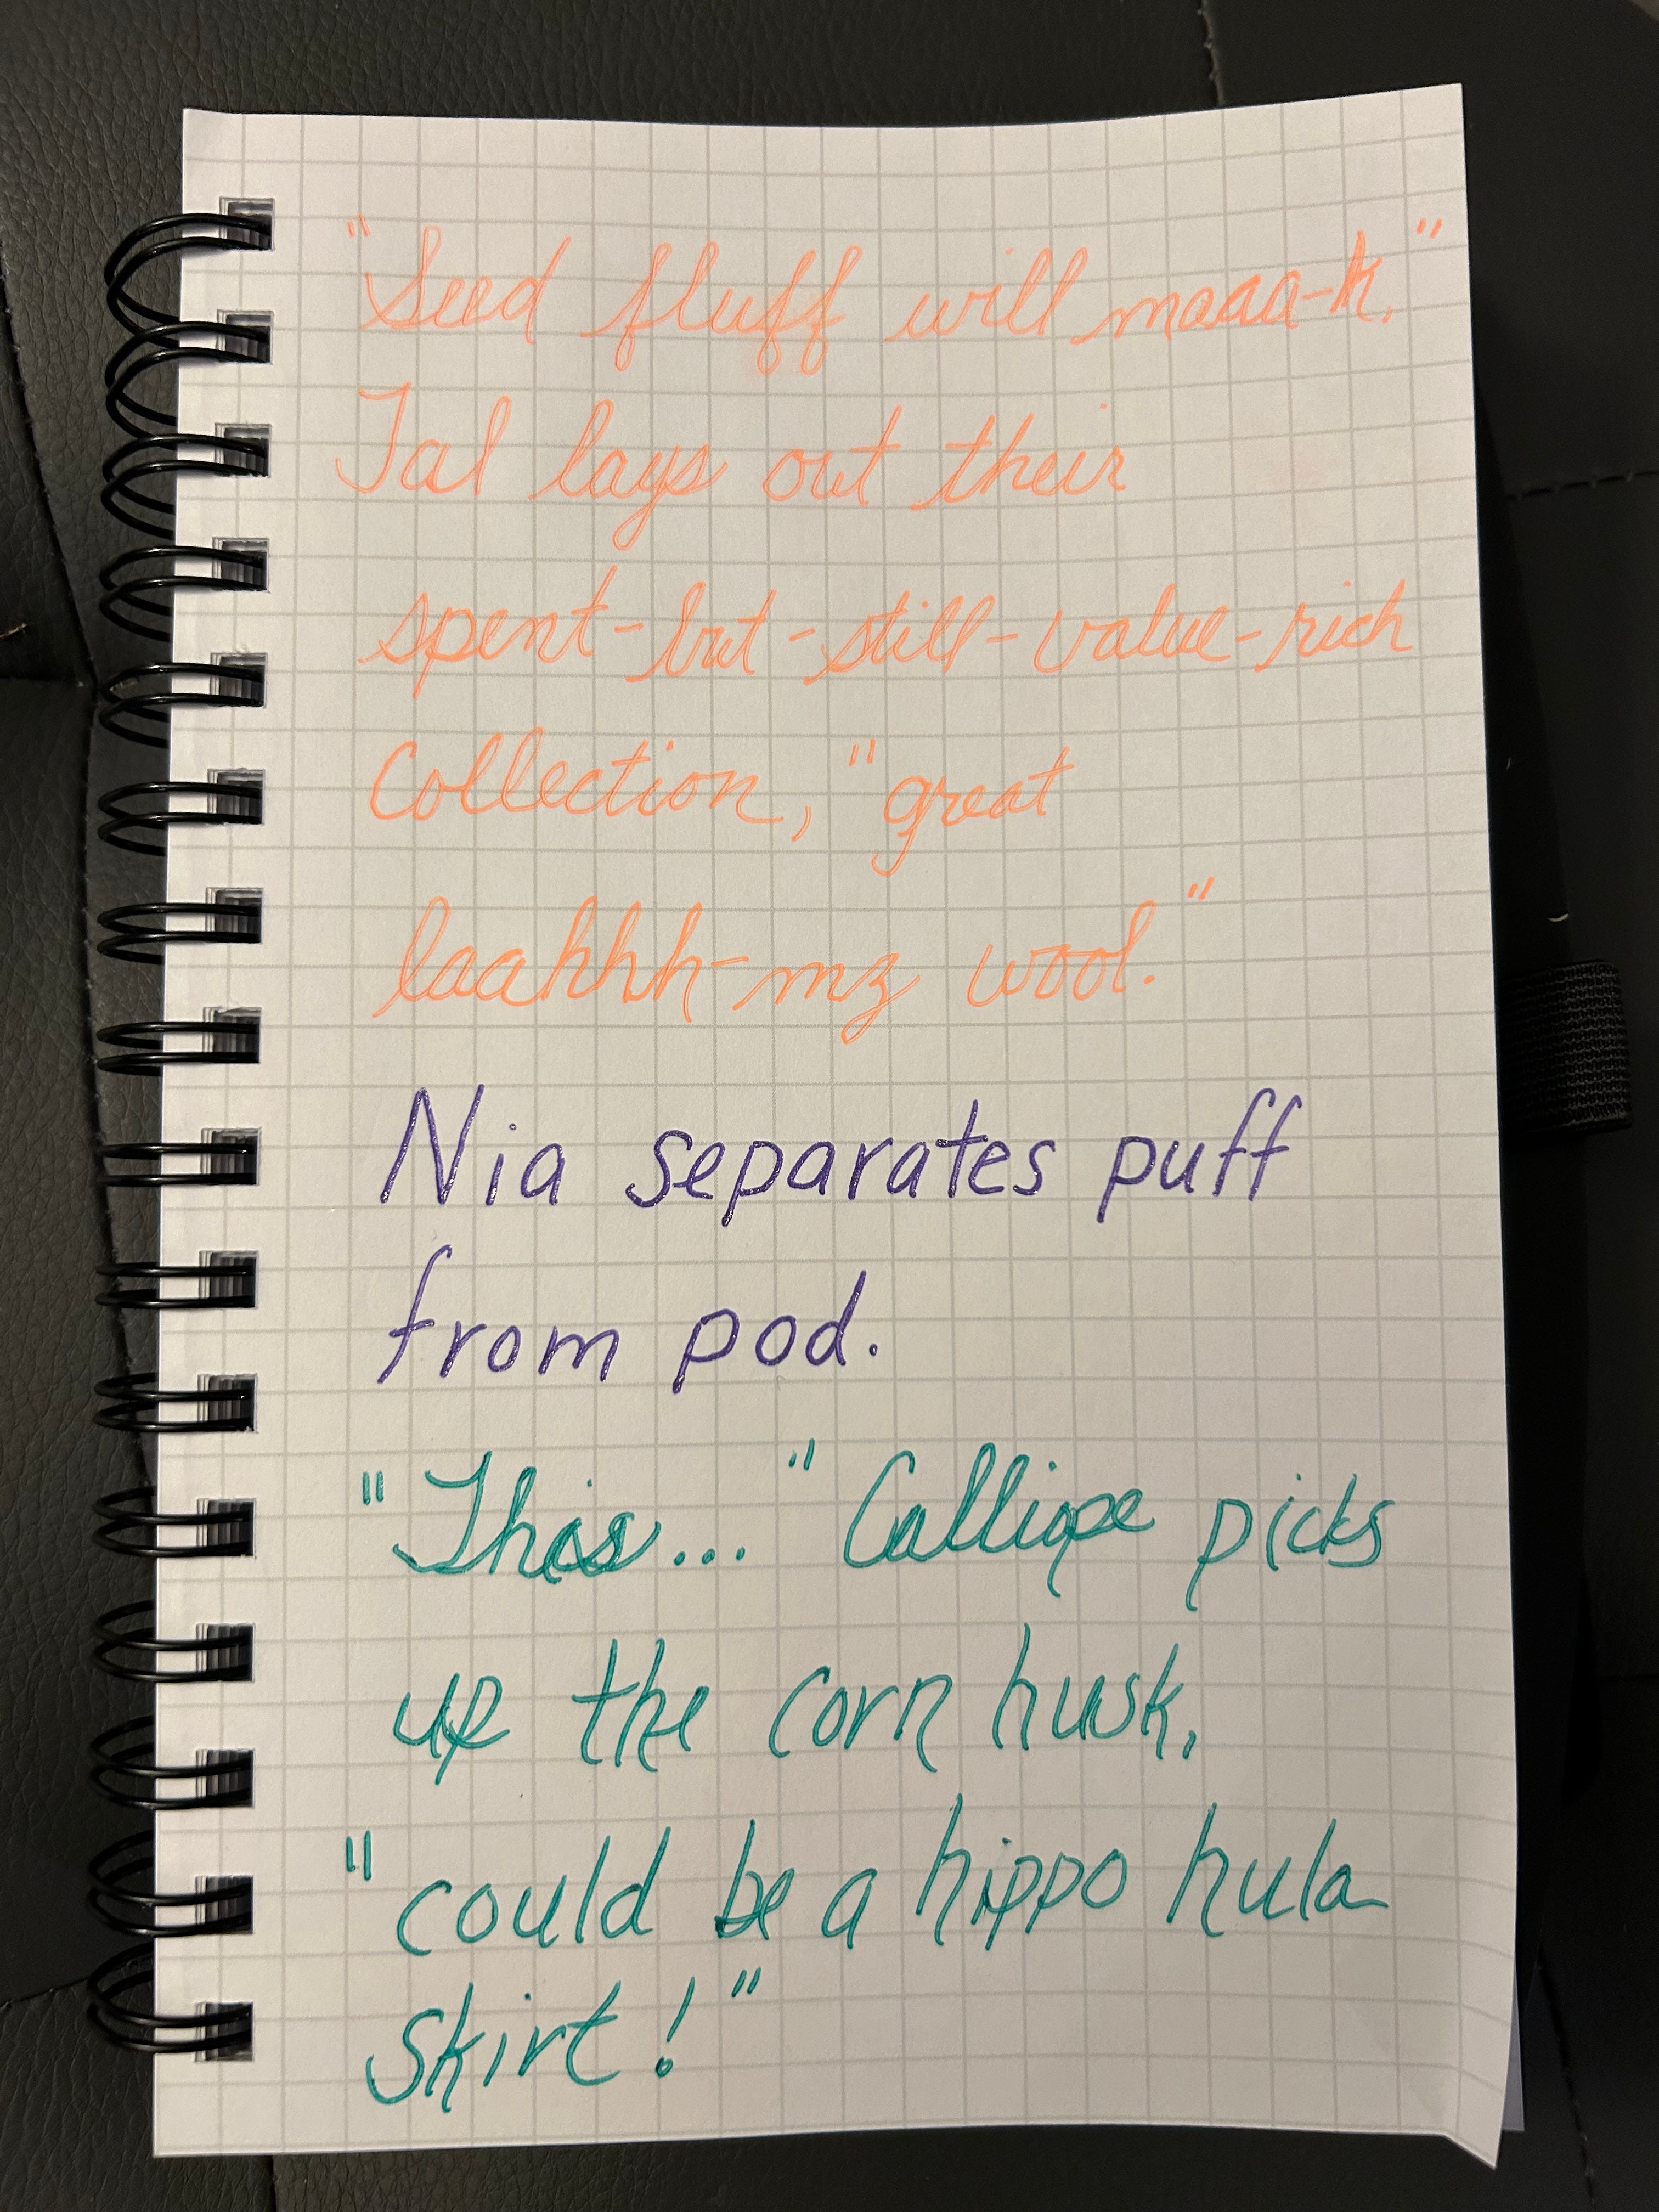 "Seed fluff will maaa-k."
Tal lays out their
spent-but-still-value-rich
collection, "great
laahhh-mz wool."
Nia separates puff
from pod.
"This..." Calliope picks
up the corn husk,
"could be a hippo hula
skirt!"